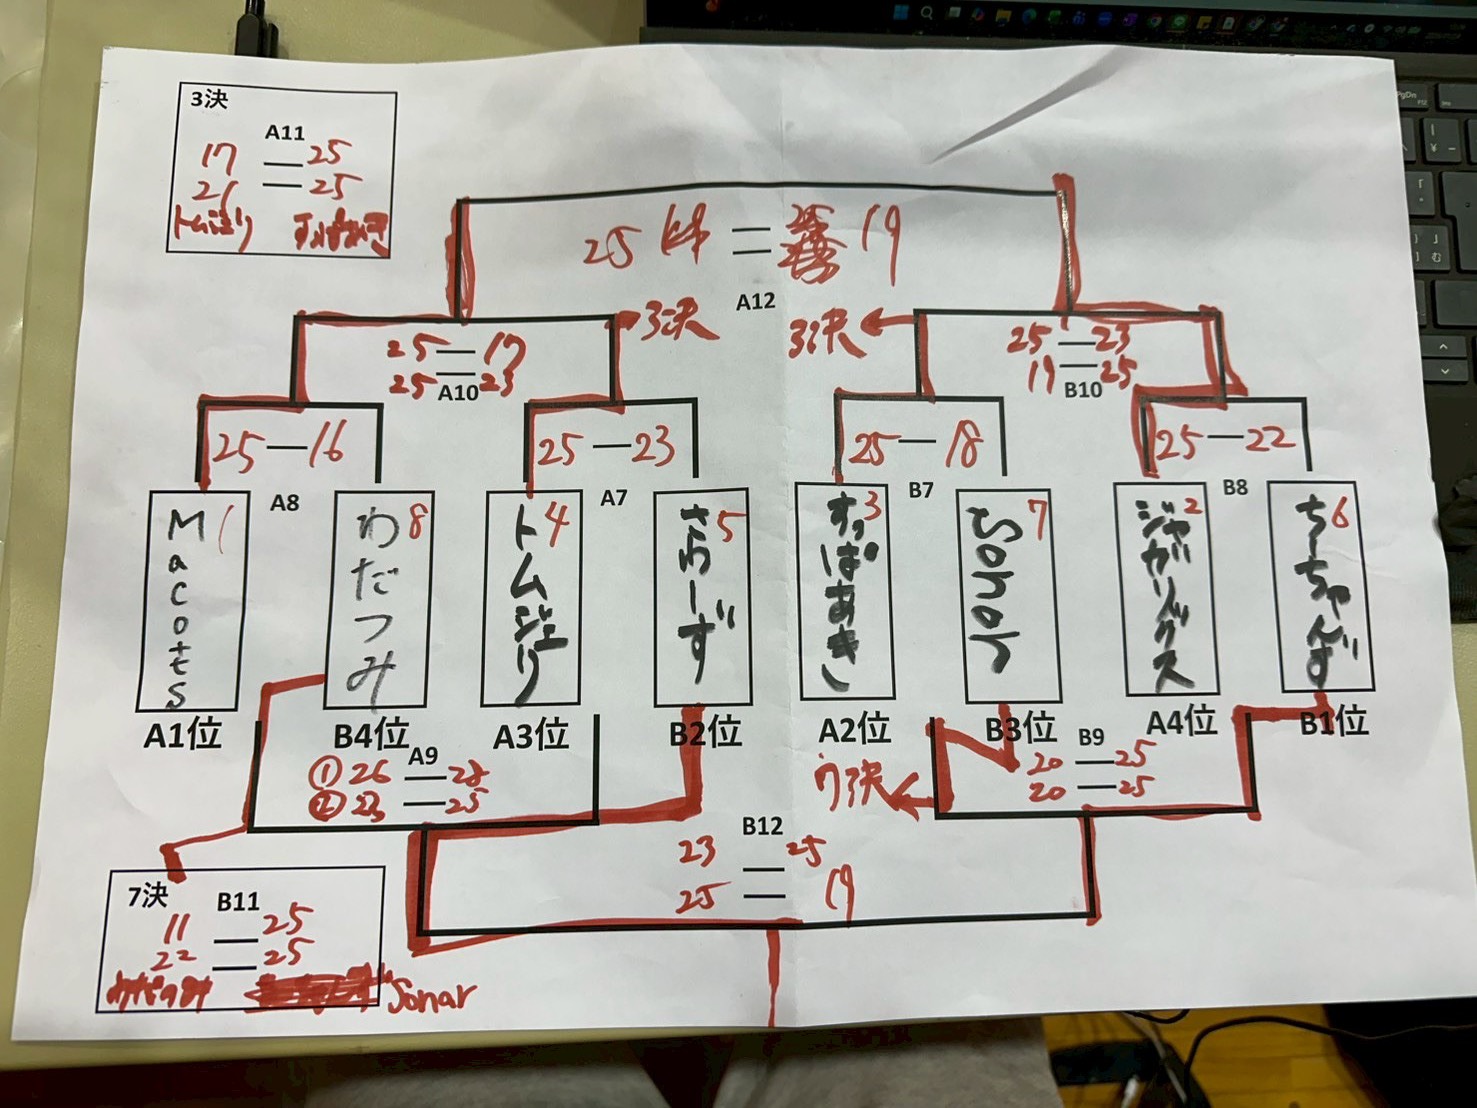 3決
A11
17 — 25
21 — 25
トムジェリ すっぱあき
25 — 19
A12
3決
3決
25 — 17
25 — 23
A10
25 — 23
19 — 25
B10
25 — 16
25 — 23
25 — 18
25 — 22
A8
A7
B7
B8
Macotts 1
わだつみ 8
トムジェリ 4
さわーず 5
すっぱあき 3
Sonor 7
ジャガリックス 2
ちーちゃんず 6
A1位
B4位
A3位
B2位
A2位
B3位
A4位
B1位
A9
① 26 — 28
② 23 — 25
B9
20 — 25
20 — 25
7決
B12
23 — 25
25 — 19
7決
B11
11 — 25
22 — 25
わだつみ Sonar